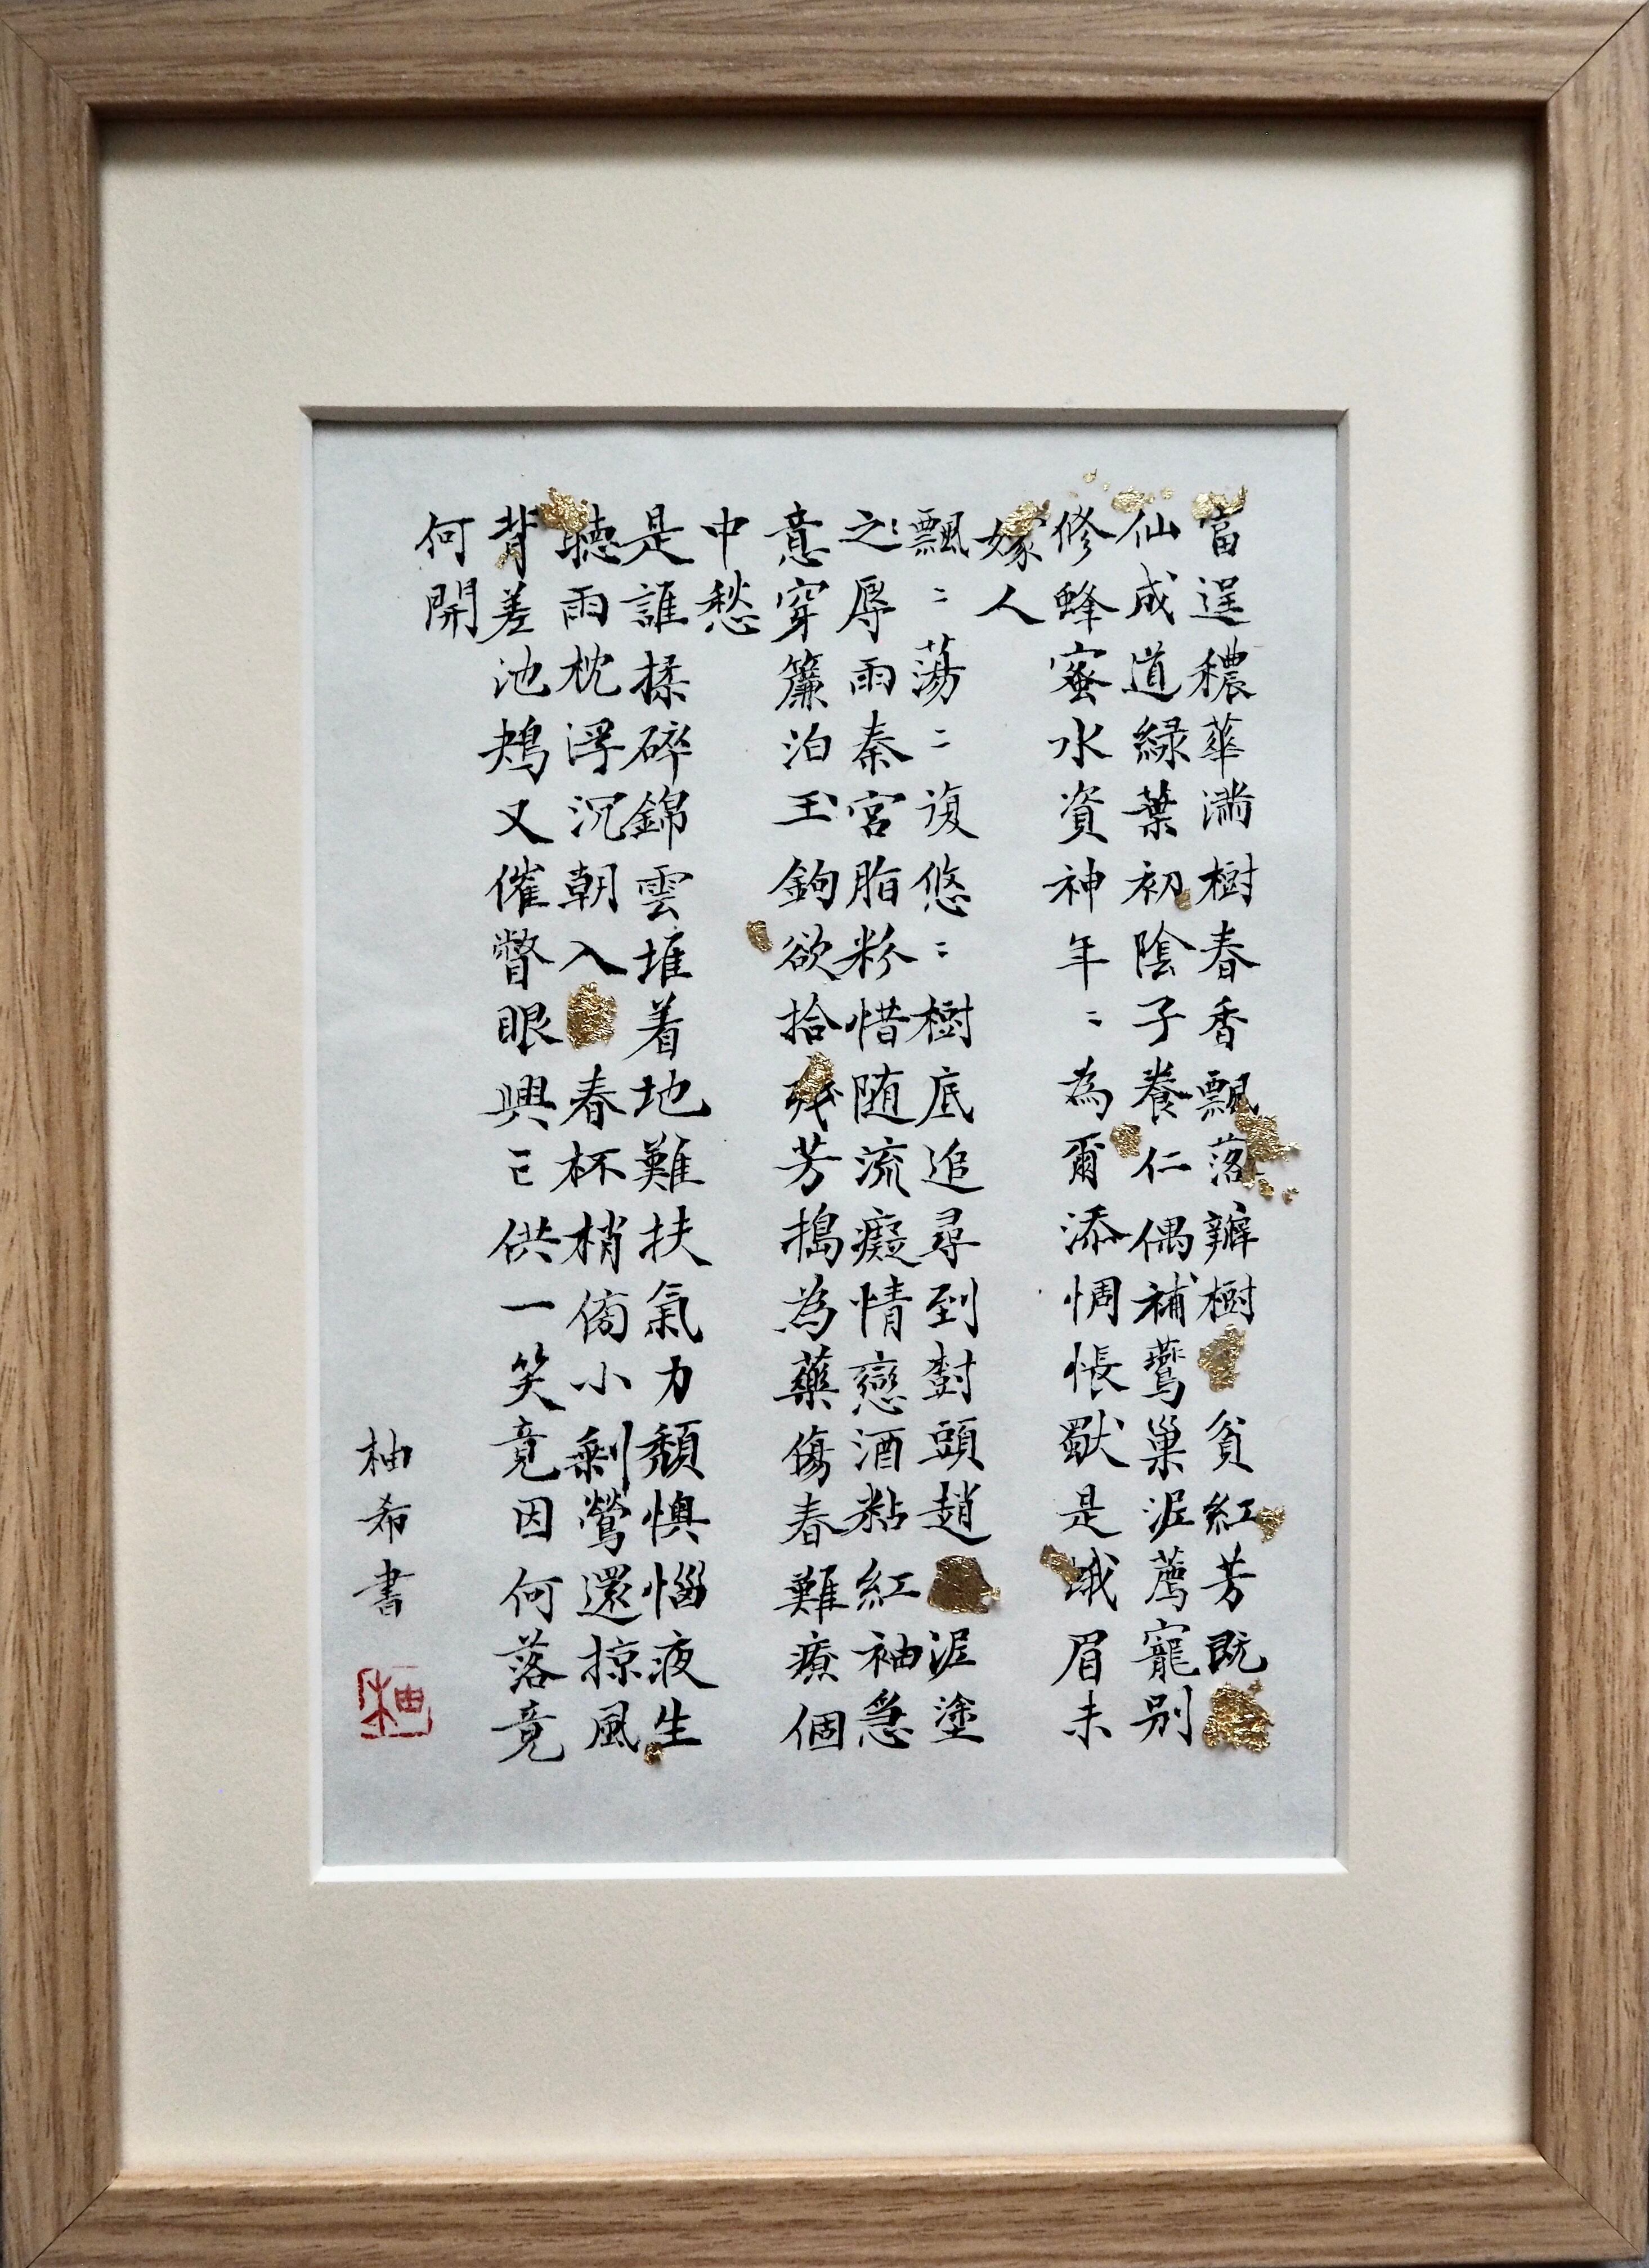 富逞穠華滿樹春香飄落瓣樹貧紅芳既
仙成道綠葉初陰子養仁偶補鸎巢泥薦寵別
修蜂蜜水資神年〻為爾添惆悵獸是蛾眉未
嫁人
飄〻蕩〻復悠〻樹底追尋到對頭趙泥塗
之辱雨秦宮脂粉惜随流癡情戀酒粘紅袖急
意穿簾泊玉鉤欲拾殘芳搗為藥傷春難療個
中愁
是誰揉碎錦雲堆着地難扶氣力頹懊惱夜生
聽雨枕浮沉朝入春杯梢備小剩鶯還掠風
背差池鴂又催瞥眼興亡供一笑竟因何落竟
何開
柚希書
柚